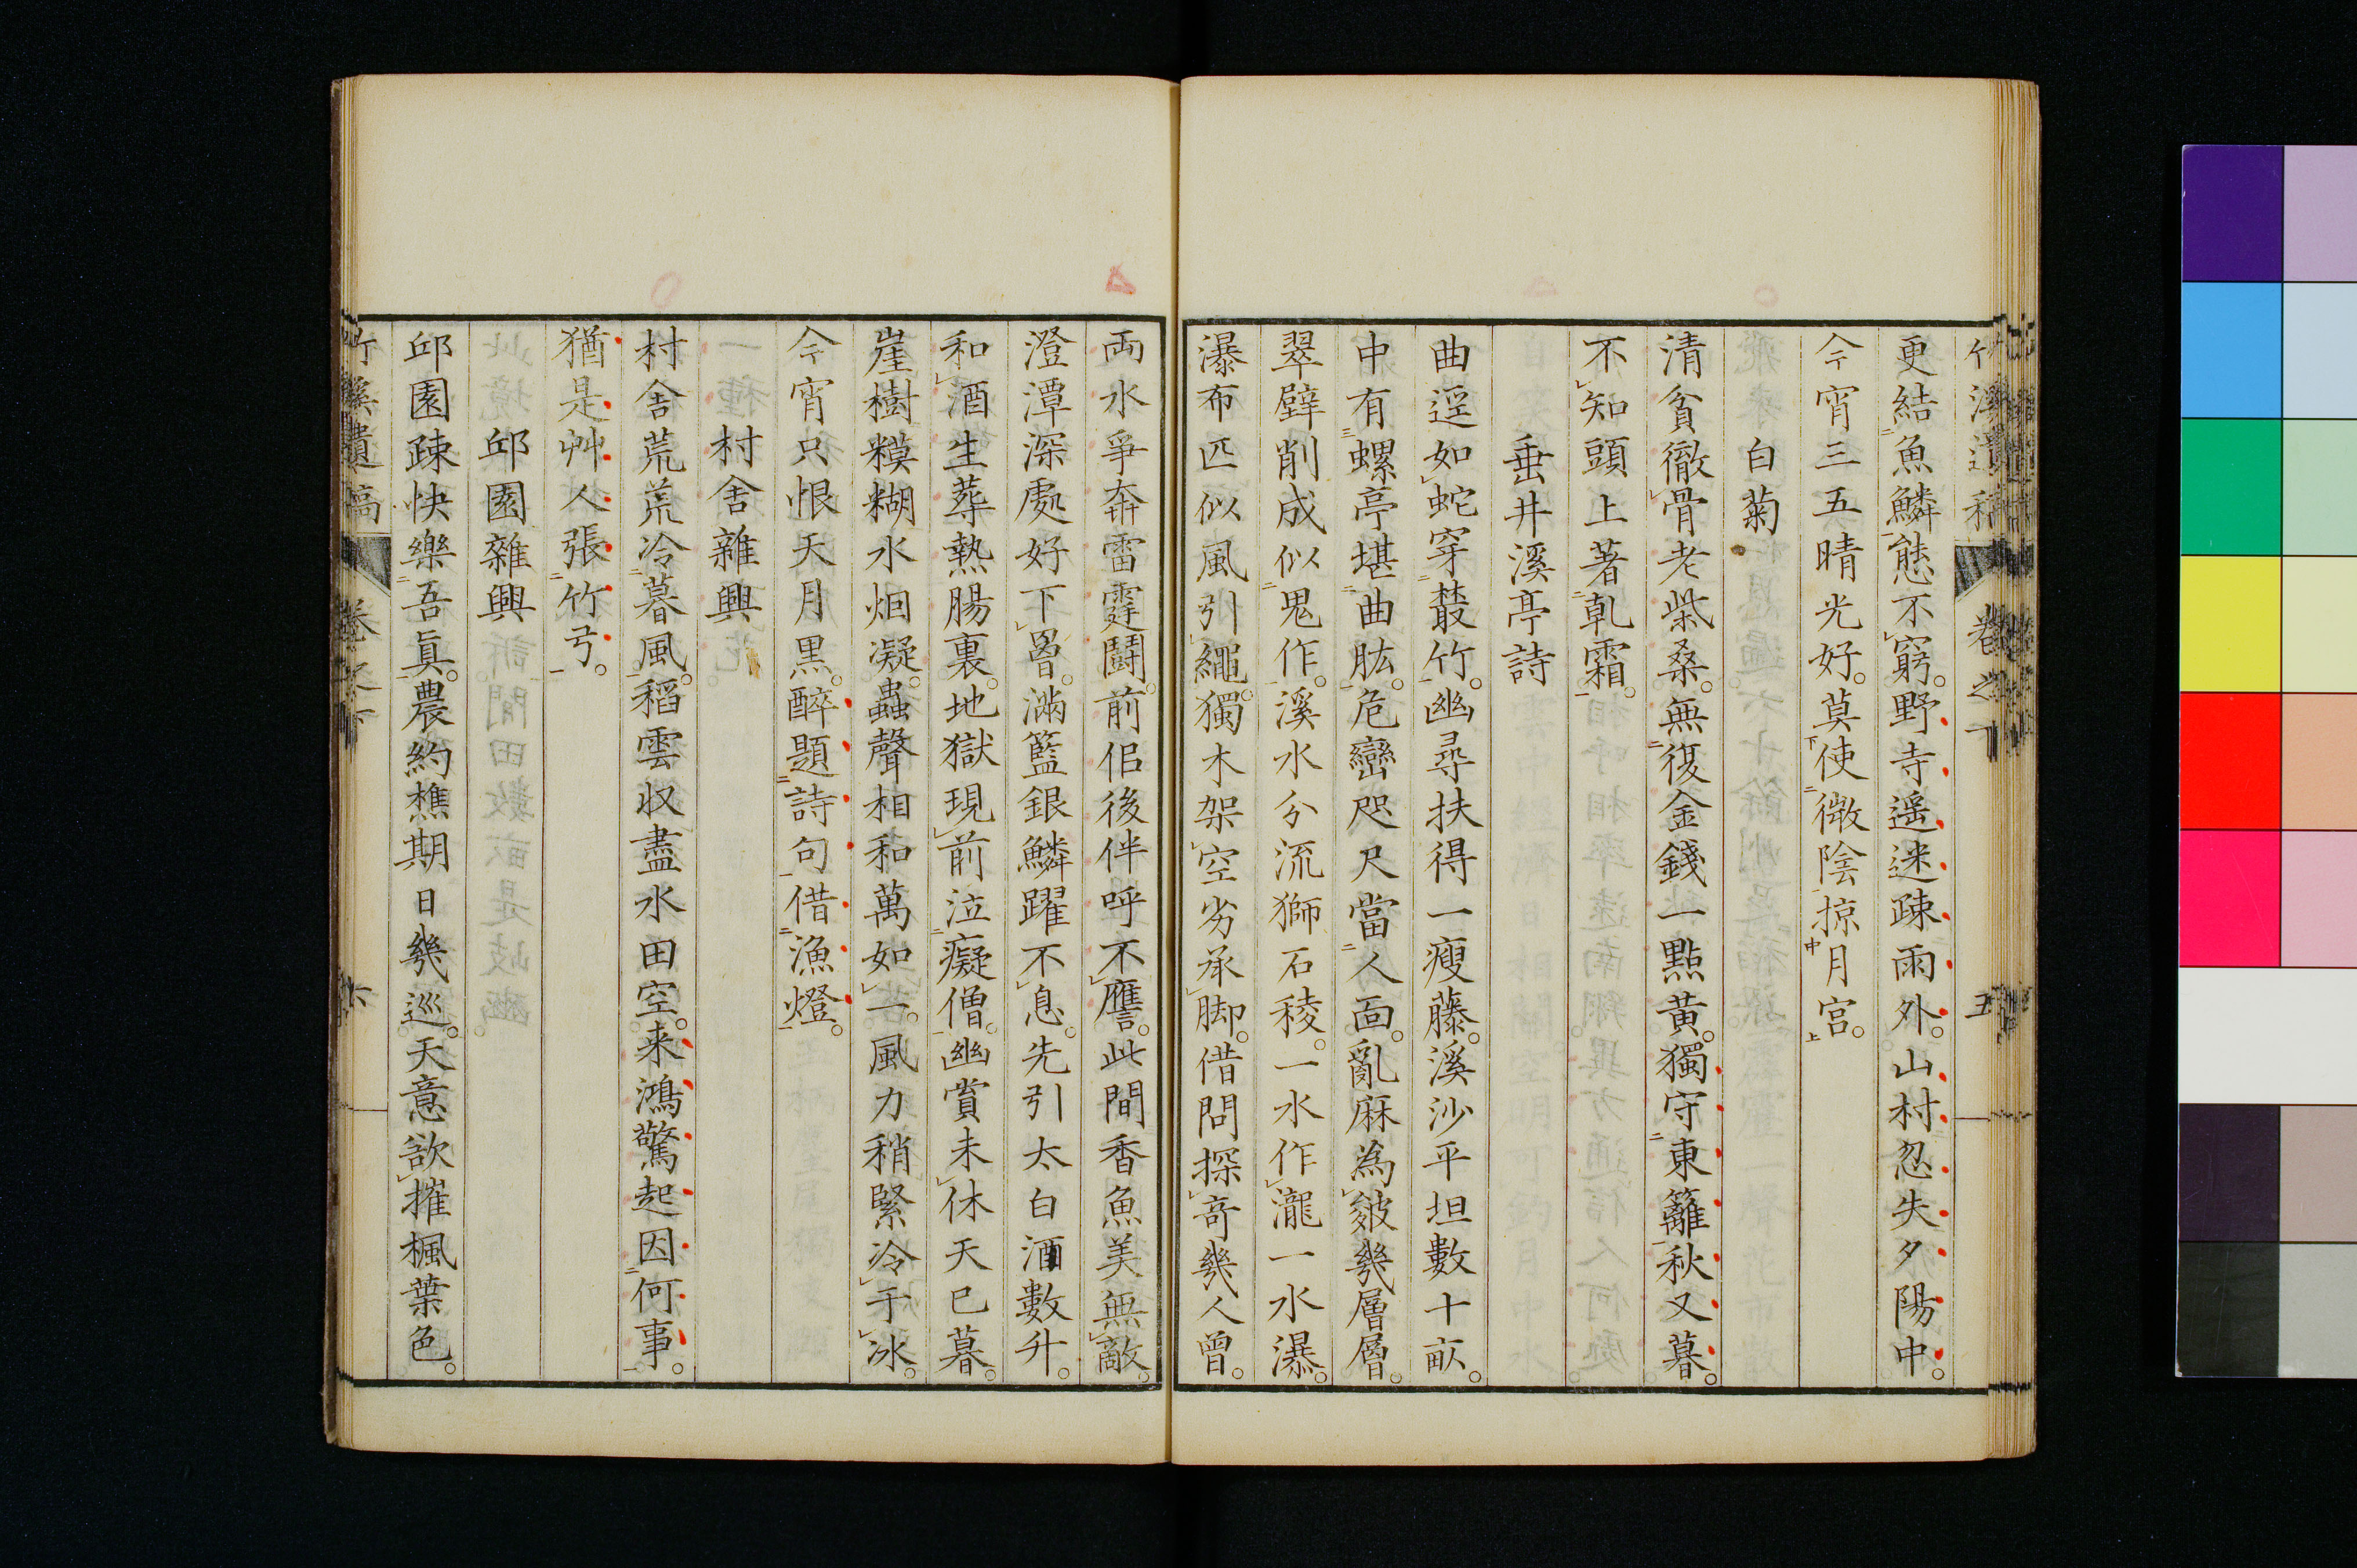 更結魚鱗態不窮。野寺遥迷疎雨外。山村忽失夕陽中。
今宵三五晴光好。莫使微陰掠月宮。
白菊
清貧徹骨老柴桑。無復金錢一點黃。獨守東籬秋又暮。
不知頭上著乹霜。
垂井溪亭詩
曲逕如蛇穿叢竹。幽尋扶得一瘦藤。溪沙平坦數十畝。
中有螺亭堪曲肱。危巒咫尺當人面。亂麻為皴幾層層。
翠壁削成似鬼作。溪水分流獅石稜。一水作瀧一水瀑。
瀑布匹似風引繩。獨木架空劣承脚。借問探奇幾人曾。
両水爭奔雷霆鬪。前侶後伴呼不譍。此間香魚美無敵。
澄潭深處好下罾。滿籃銀鱗躍不息。先引太白酒數升。
和酒生葬熱腸裏。地獄現前泣癡僧。幽賞未休天已暮。
崖樹糢糊水烟凝。蟲聲相和萬如一。風力稍緊冷于冰。
今宵只恨天月黒。醉題詩句借漁燈。
村舍雜興
村舍荒荒冷暮風。稻雲収盡水田空。来鴻驚起因何事。
猶是艸人張竹弓。
邱園雜興
邱園疎快樂吾眞。農約樵期日幾巡。天意欲摧楓葉色。
竹溪遺稿 卷之下 六